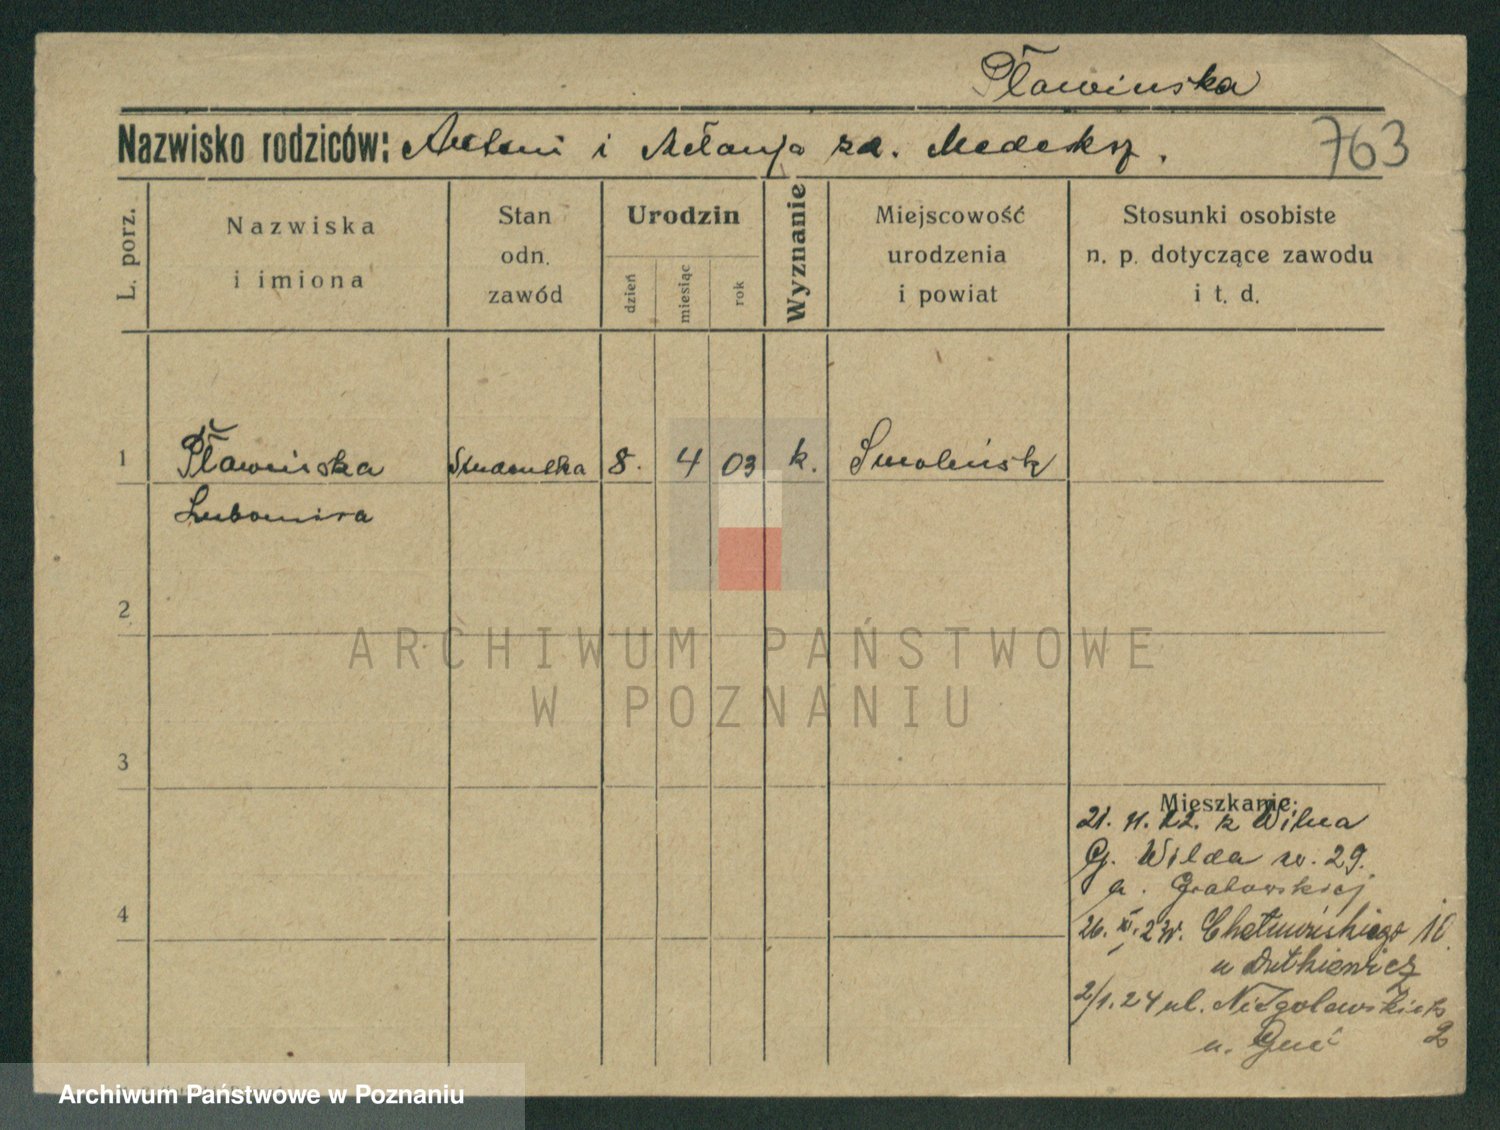 Pławińska
Nazwisko rodziców: Antoni i Melanja za. Medeksz.
763
L. porz.
Nazwiska
i imiona
Stan
odn.
zawód
Urodzin
dzień
miesiąc
rok
Wyznanie
Miejscowość
urodzenia
i powiat
Stosunki osobiste
n. p. dotyczące zawodu
i t. d.
1 Pławińska Studentka 8. 4 03 k. Smoleńsk
Lubomira
2
3
4
Mieszkanie:
21. 22. z Wilna
G. Wilda 29.
Grabowskiej
26. XI. 23 Chełmońskiego 10
u Dutkiewicz
2/1.24 ul. Niegolewskich
2
u.
ARCHIWUM PAŃSTWOWE
W POZNANIU
Archiwum Państwowe w Poznaniu